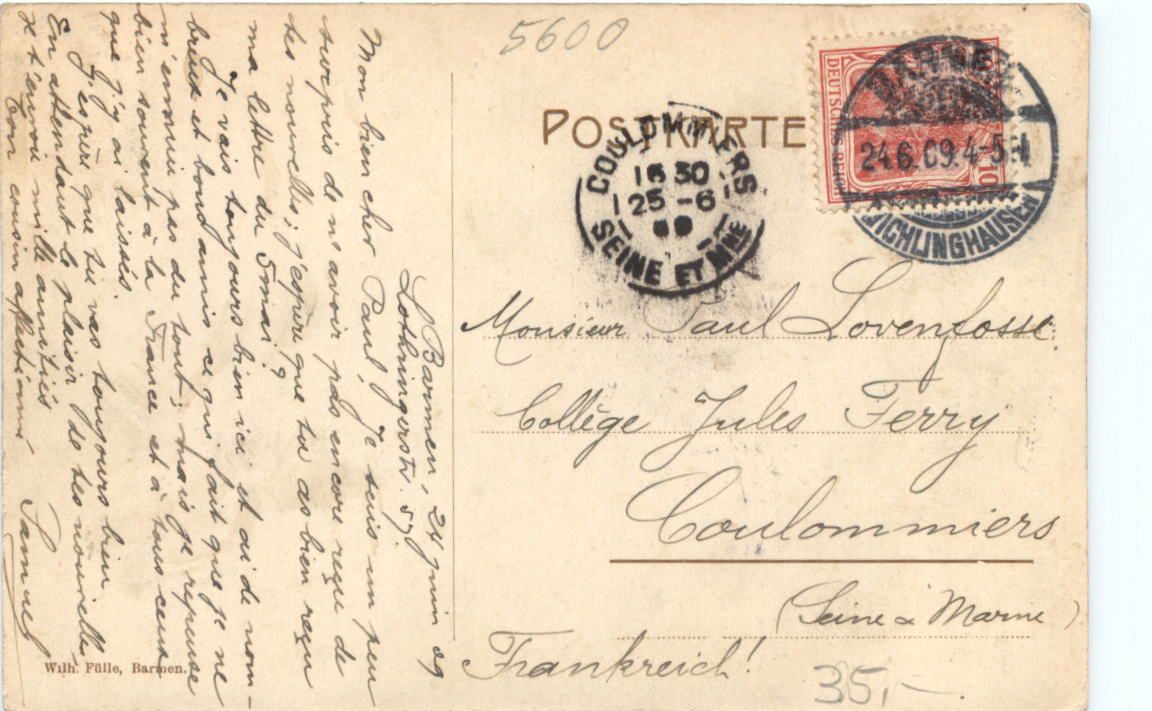 5600
POSTKARTE
DEUTSCHES REICH
10
BARMEN
24.6.09.4-5N
WICHLINGHAUSEN
COULOMMIERS
16 30
25-6
09
SEINE ET MNE
Barmen, 24 juin 09
Lothringerstr. 57
Mon bien cher Paul, Je suis un peu
surpris de n'avoir pas encore reçu de
tes nouvelles; j'espère que tu as bien reçu
ma lettre du 5 mai?
Je vais toujours bien ici et ai de nom-
breux et bons amis ce qui fait que je ne
m'ennuie pas du tout; mais je repense
bien souvent à la France et à tous ceux
que j'y ai laissés.
J'espère que tu vas toujours bien
En attendant le plaisir de tes nouvelles
je t'envoie mille amitiés
Ton cousin affectionné Samuel
Monsieur Paul Lovenfosse
Collège Jules Ferry
Coulommiers
(Seine & Marne)
Frankreich!
Wilh. Fülle, Barmen.
35,-